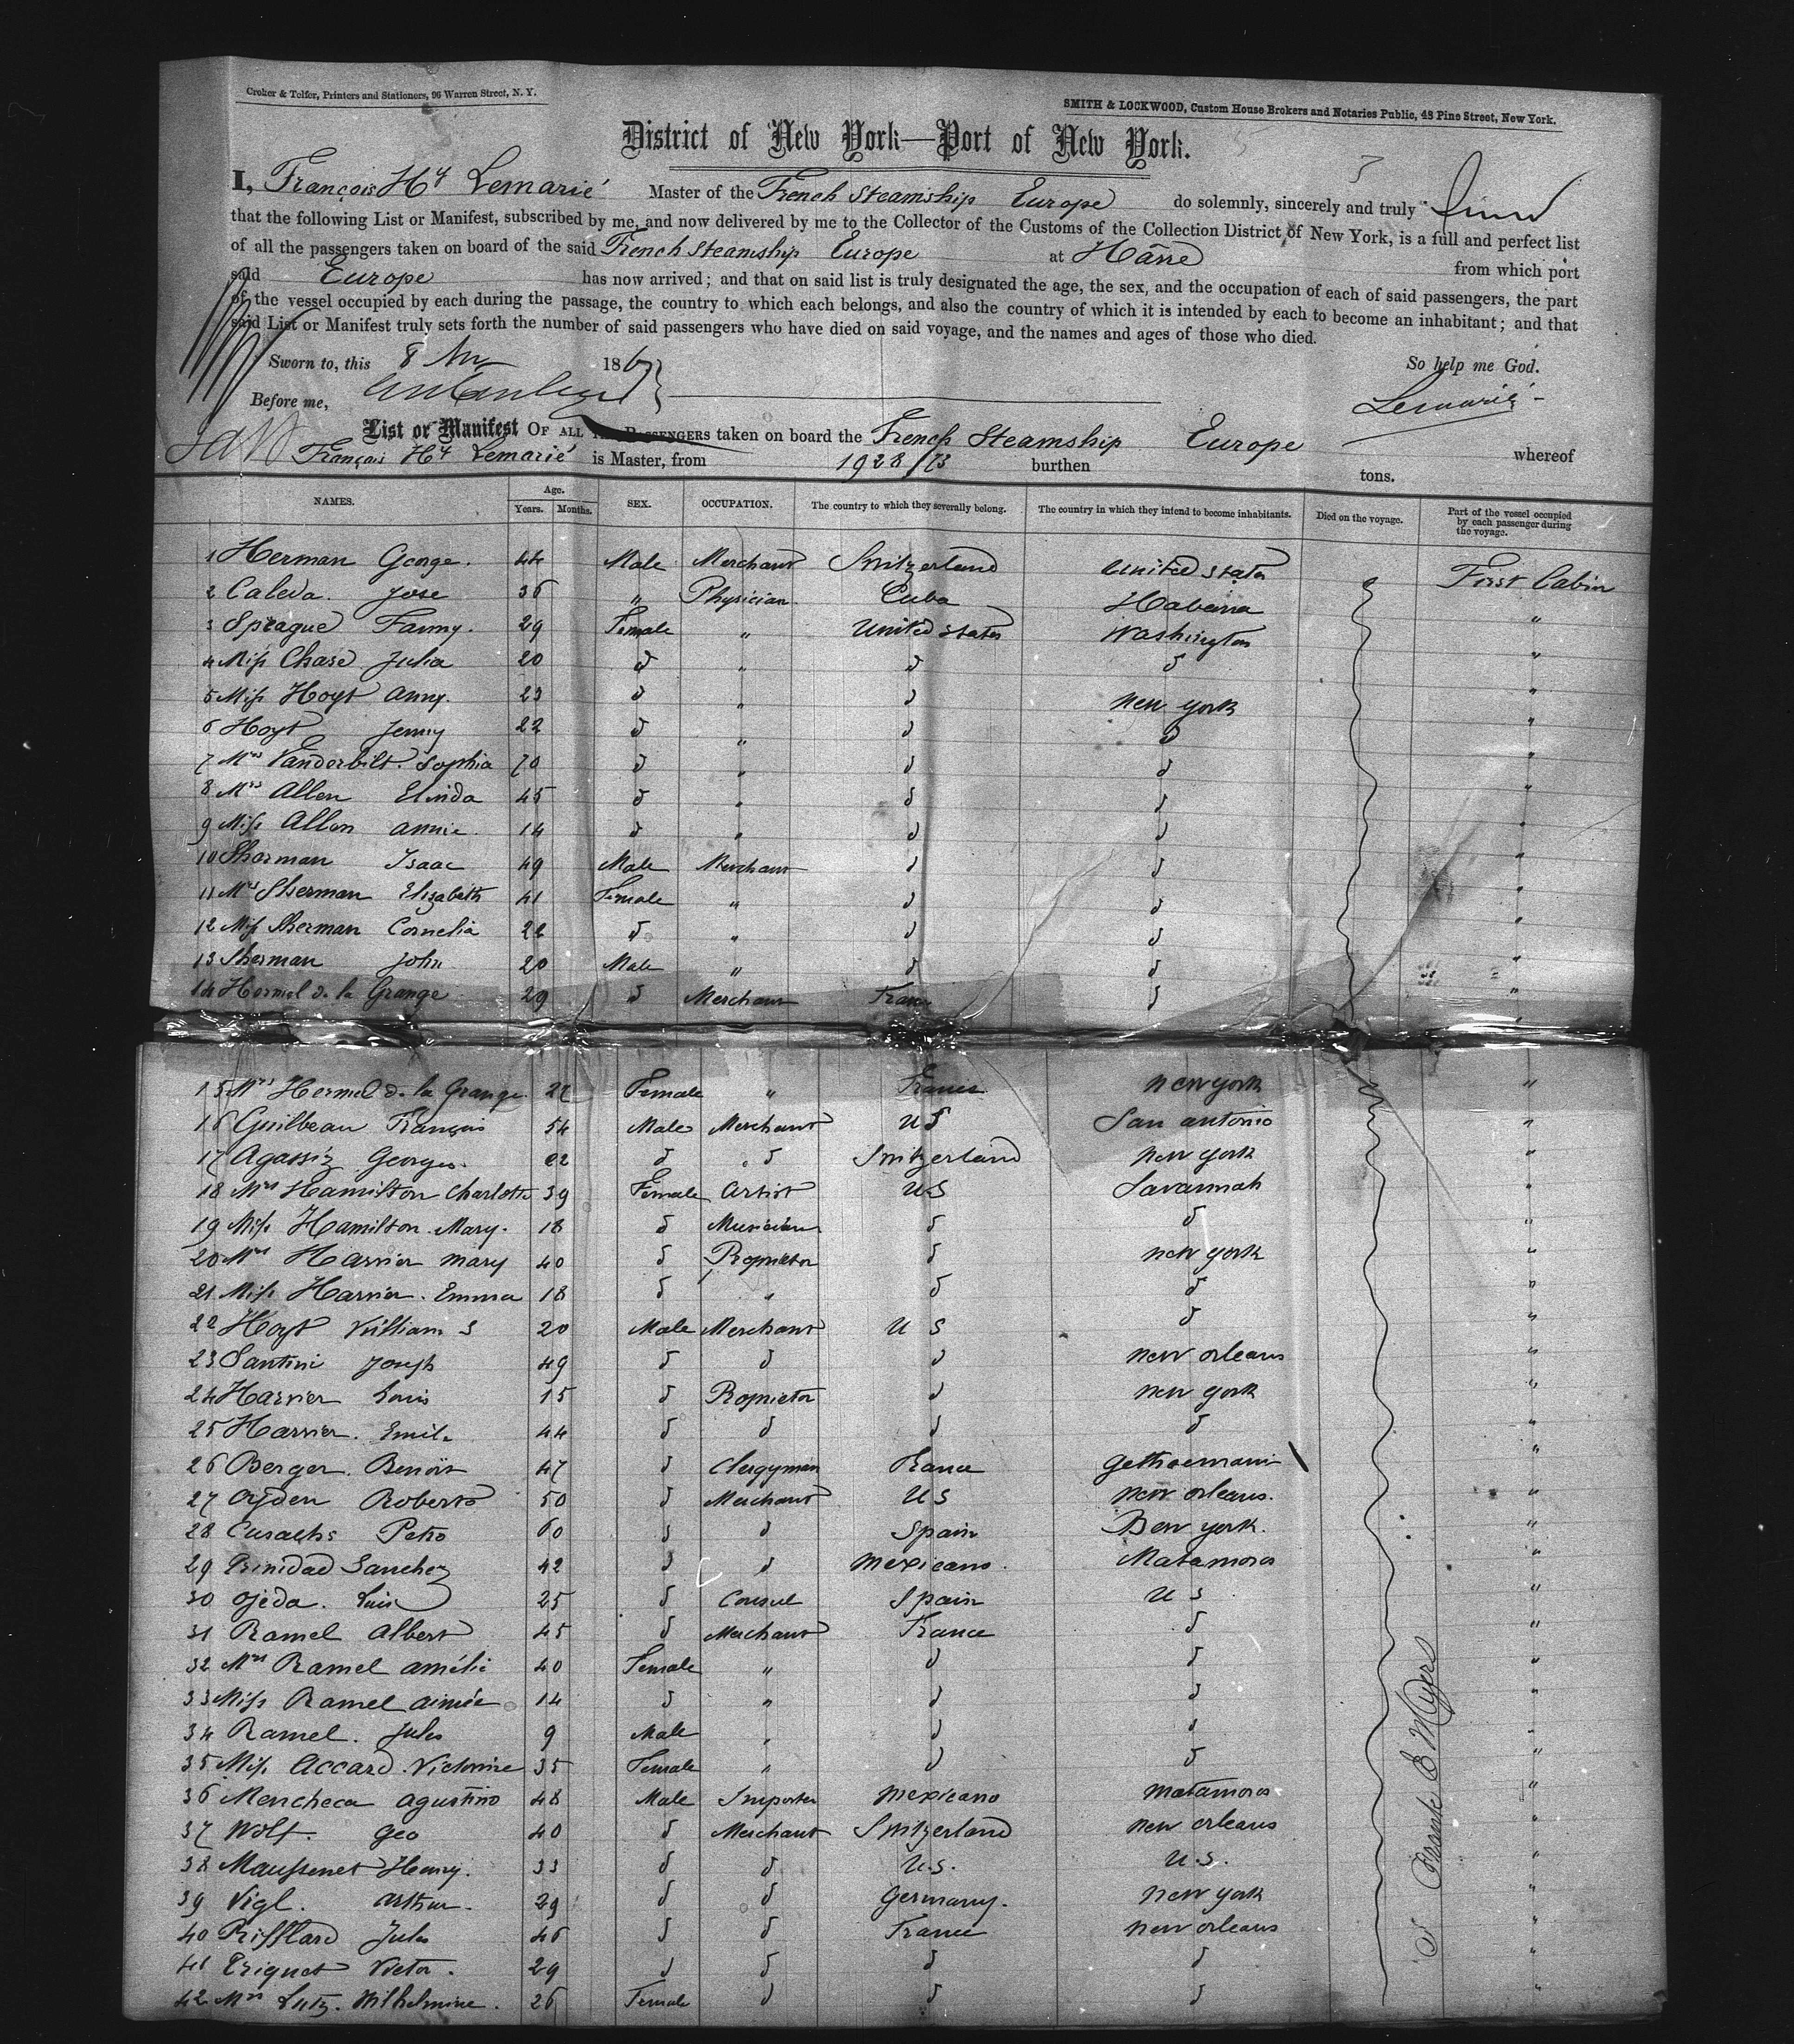 Croker & Telfer, Printers and Stationers, 96 Warren Street, N. Y.
SMITH & LOCKWOOD, Custom House Brokers and Notaries Public, 48 Pine Street, New York.
District of New York—Port of New York.
I, François Hy Lemarié Master of the French Steamship Europe do solemnly, sincerely and truly
that the following List or Manifest, subscribed by me, and now delivered by me to the Collector of the Customs of the Collection District of New York, is a full and perfect list
of all the passengers taken on board of the said French Steamship Europe at Hâvre from which port
said Europe has now arrived; and that on said list is truly designated the age, the sex, and the occupation of each of said passengers, the part
of the vessel occupied by each during the passage, the country to which each belongs, and also the country of which it is intended by each to become an inhabitant; and that
said List or Manifest truly sets forth the number of said passengers who have died on said voyage, and the names and ages of those who died.
Sworn to, this 8 186 So help me God.
Before me, Lemarié
List or Manifest OF ALL THE PASSENGERS taken on board the French Steamship Europe whereof
François Hy Lemarié is Master, from 1928/73 burthen tons.
NAMES. Age. Years. Months. SEX. OCCUPATION. The country to which they severally belong. The country in which they intend to become inhabitants. Died on the voyage. Part of the vessel occupied by each passenger during the voyage.
1 Herman George. 44 Male Merchant Switzerland United States First Cabin
2 Caleda. Jose 36 " Physician Cuba Habana "
3 Sprague Fanny. 29 Female " United States Washington "
4 Miss Chase Julia 20 d " d d "
5 Miss Hoyt Anny. 23 d " d New York "
6 Hoyt Jenny 22 d " d d "
7 Mrs Vanderbilt. Sophia 70 d " d d "
8 Mrs Allen Elinda 45 d " d d "
9 Miss Allen Annie. 14 d " d d "
10 Sherman Isaac 49 Male Merchant d d "
11 Mrs Sherman Elizabeth 41 Female " d d "
12 Miss Sherman Cornelia 22 d " d d "
13 Sherman John 20 Male " d d "
14 Hermel d. la Grange 29 d Merchant France d "
15 Mrs Hermel d. la Grange. 22 Female " France New York "
16 Guilbeau François 54 Male Merchant U S San Antonio "
17 Agassiz Georges. 22 d d Switzerland New York "
18 Mrs Hamilton Charlotte 39 Female Artist U S Savannah "
19 Miss Hamilton. Mary. 18 d Musician d d "
20 Mrs Harrier Mary 40 d Proprietor d New York "
21 Miss Harrier. Emma 18 d " d d "
22 Hoyt William S 20 Male Merchant U S d "
23 Santini Joseph 49 d d d New Orleans "
24 Harrier Louis 15 d Proprietor d New York "
25 Harrier. Emile 44 d d d d "
26 Berger. Benoit 47 d Clergyman France Gethsemani "
27 Ogden Robert 50 d Merchant U S New Orleans. "
28 Cusachs Petro 60 d d Spain Bew York. "
29 Trinidad Sanchez 42 d d Mexicano. Matamoros "
30 Ojeda. Luis 25 d Consul Spain U S "
31 Ramel Albert 45 d Merchant France d "
32 Mrs Ramel Amélie 40 Female " d d "
33 Miss Ramel Aimée 14 d " d d "
34 Ramel. Jules 9 Male " d d "
35 Miss Accard. Victorine 35 Female " d d "
36 Mencheca Agustino 48 Male Importer Mexicano Matamoros "
37 Wolf. Geo 40 d Merchant Switzerland New Orleans "
38 Maussenet Henry. 33 d d U.S. U.S. "
39 Vigl. Arthur. 29 d d Germany. New York "
40 Rifflard Jules 46 d d France New Orleans "
41 Eriquet Victor. 29 d d d d "
42 Mrs Lutz. Wilhelmine. 26 Female d d d "
Frank E Myers